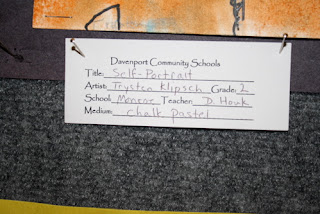 Davenport Community Schools
Title: Self-Portrait
Artist: Trysten Klipsch Grade: 2
School: Monroe Teacher: D. Houk
Medium: Chalk Pastel